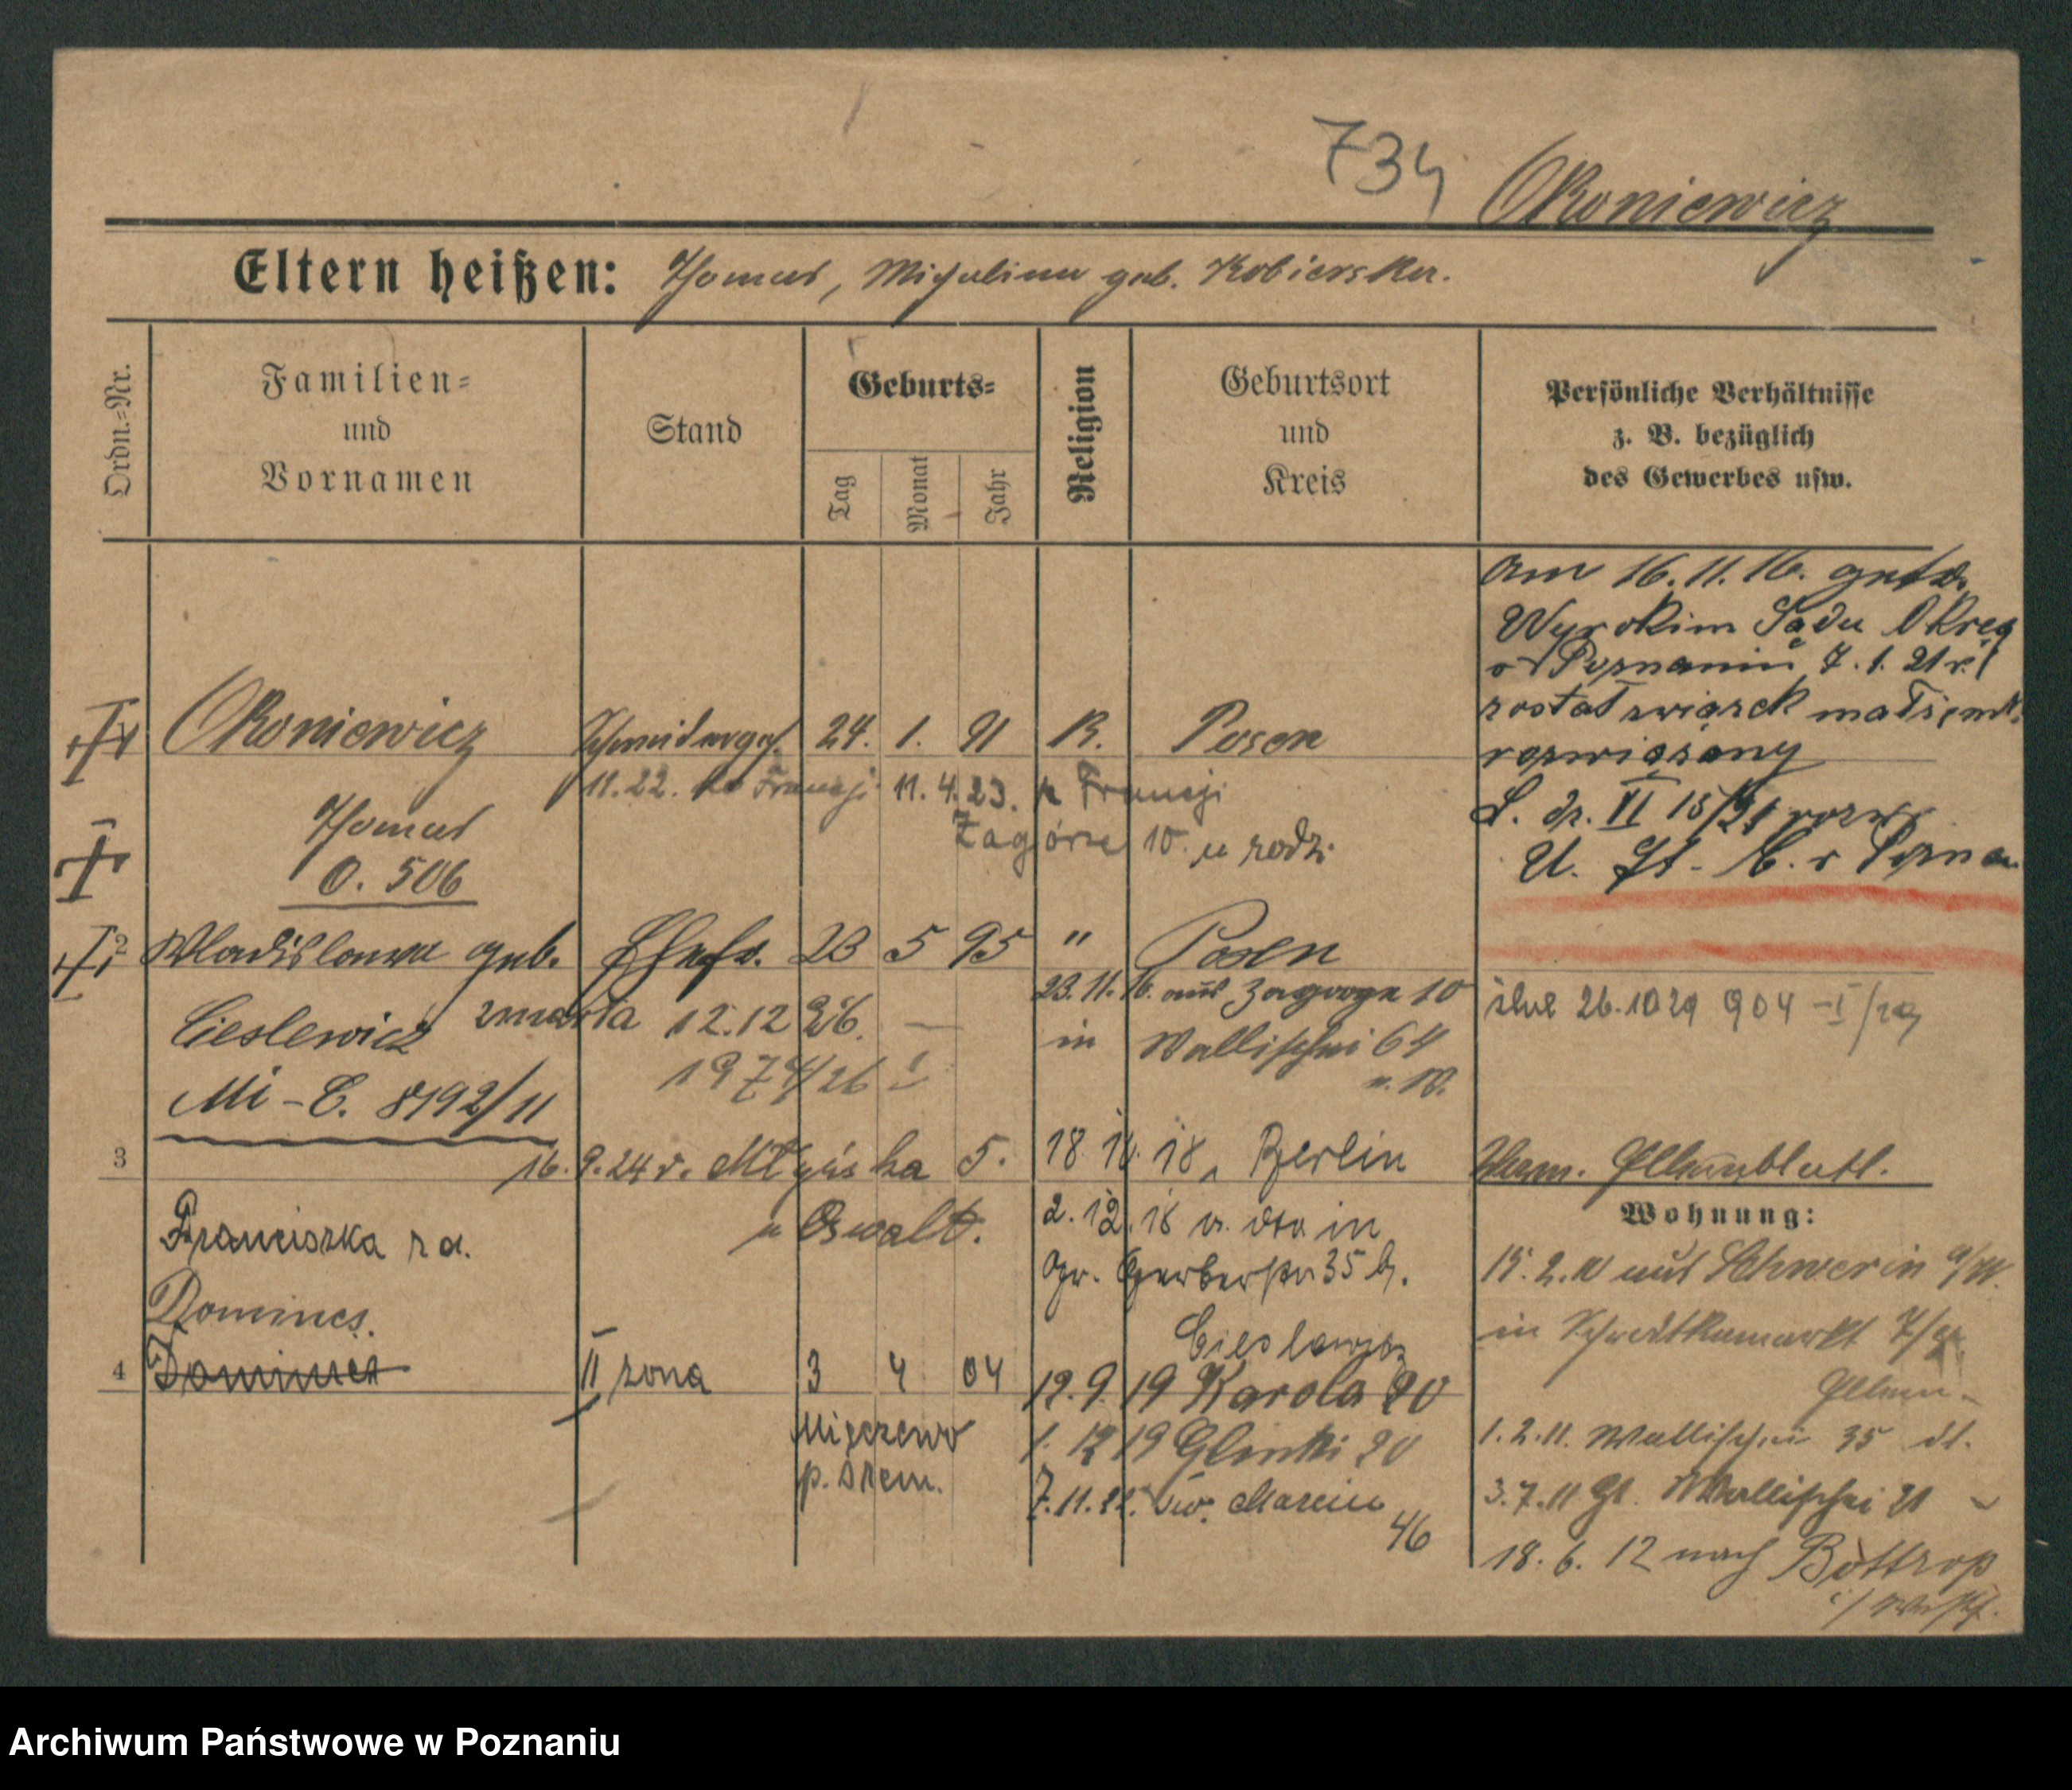 734 Okoniewicz
Eltern heißen: Thomas, Michalina geb. Kobierska.
Ordn.-Nr.
Familien-
und
Vornamen
Stand
Geburts-
Tag
Monat
Jahr
Religion
Geburtsort
und
Kreis
Persönliche Verhältnisse
z. B. bezüglich
des Gewerbes usw.
Am 16.11.16. getr.
Wyrokiem Sądu Okręg
w Poznaniu 7.1.21 r.
został związek małżeńs.
rozwiązany
U. St. C. Poznań
Okoniewicz Schneiderges. 24. 1. 91 K. Posen
11.22. do Francji 11.4.23. z Francji
Thomas
Zagórze 10. u rodz.
O. 506
2 Wladislawa geb. Ehefr. 23 5 95 " Posen
23.11.16. aus Zagorze 10
Cieslewicz zmarła 12.12 26. —
in Wallischei 64
1974/26 I
26.10 29 904 - I/29
Mi - C. 8192/11
3 16.9.24 r. Młyńska 5.
u Oswald.
18 10. 18, Berlin
2.12.18 v. dta in
Gr. Gerberstr 35 b.
Cieslewicz
Franciszka z d.
Domines.
4 Domines II żona 3 4 04
Mieczewo
p. Śrem.
12.9.19 Karola 20
1. 12 19 Glinki 20
7.11.22. Św. Marcin
46
Wohnung:
15.2.10 aus Schwerin a/W.
in Schrodkamarkt 7/
1.2.11. Wallischei 35 dl.
3.7.11 Gl. Wallischei 21
18.6.12 nach Bottrop
i/ Westf.
Archiwum Państwowe w Poznaniu